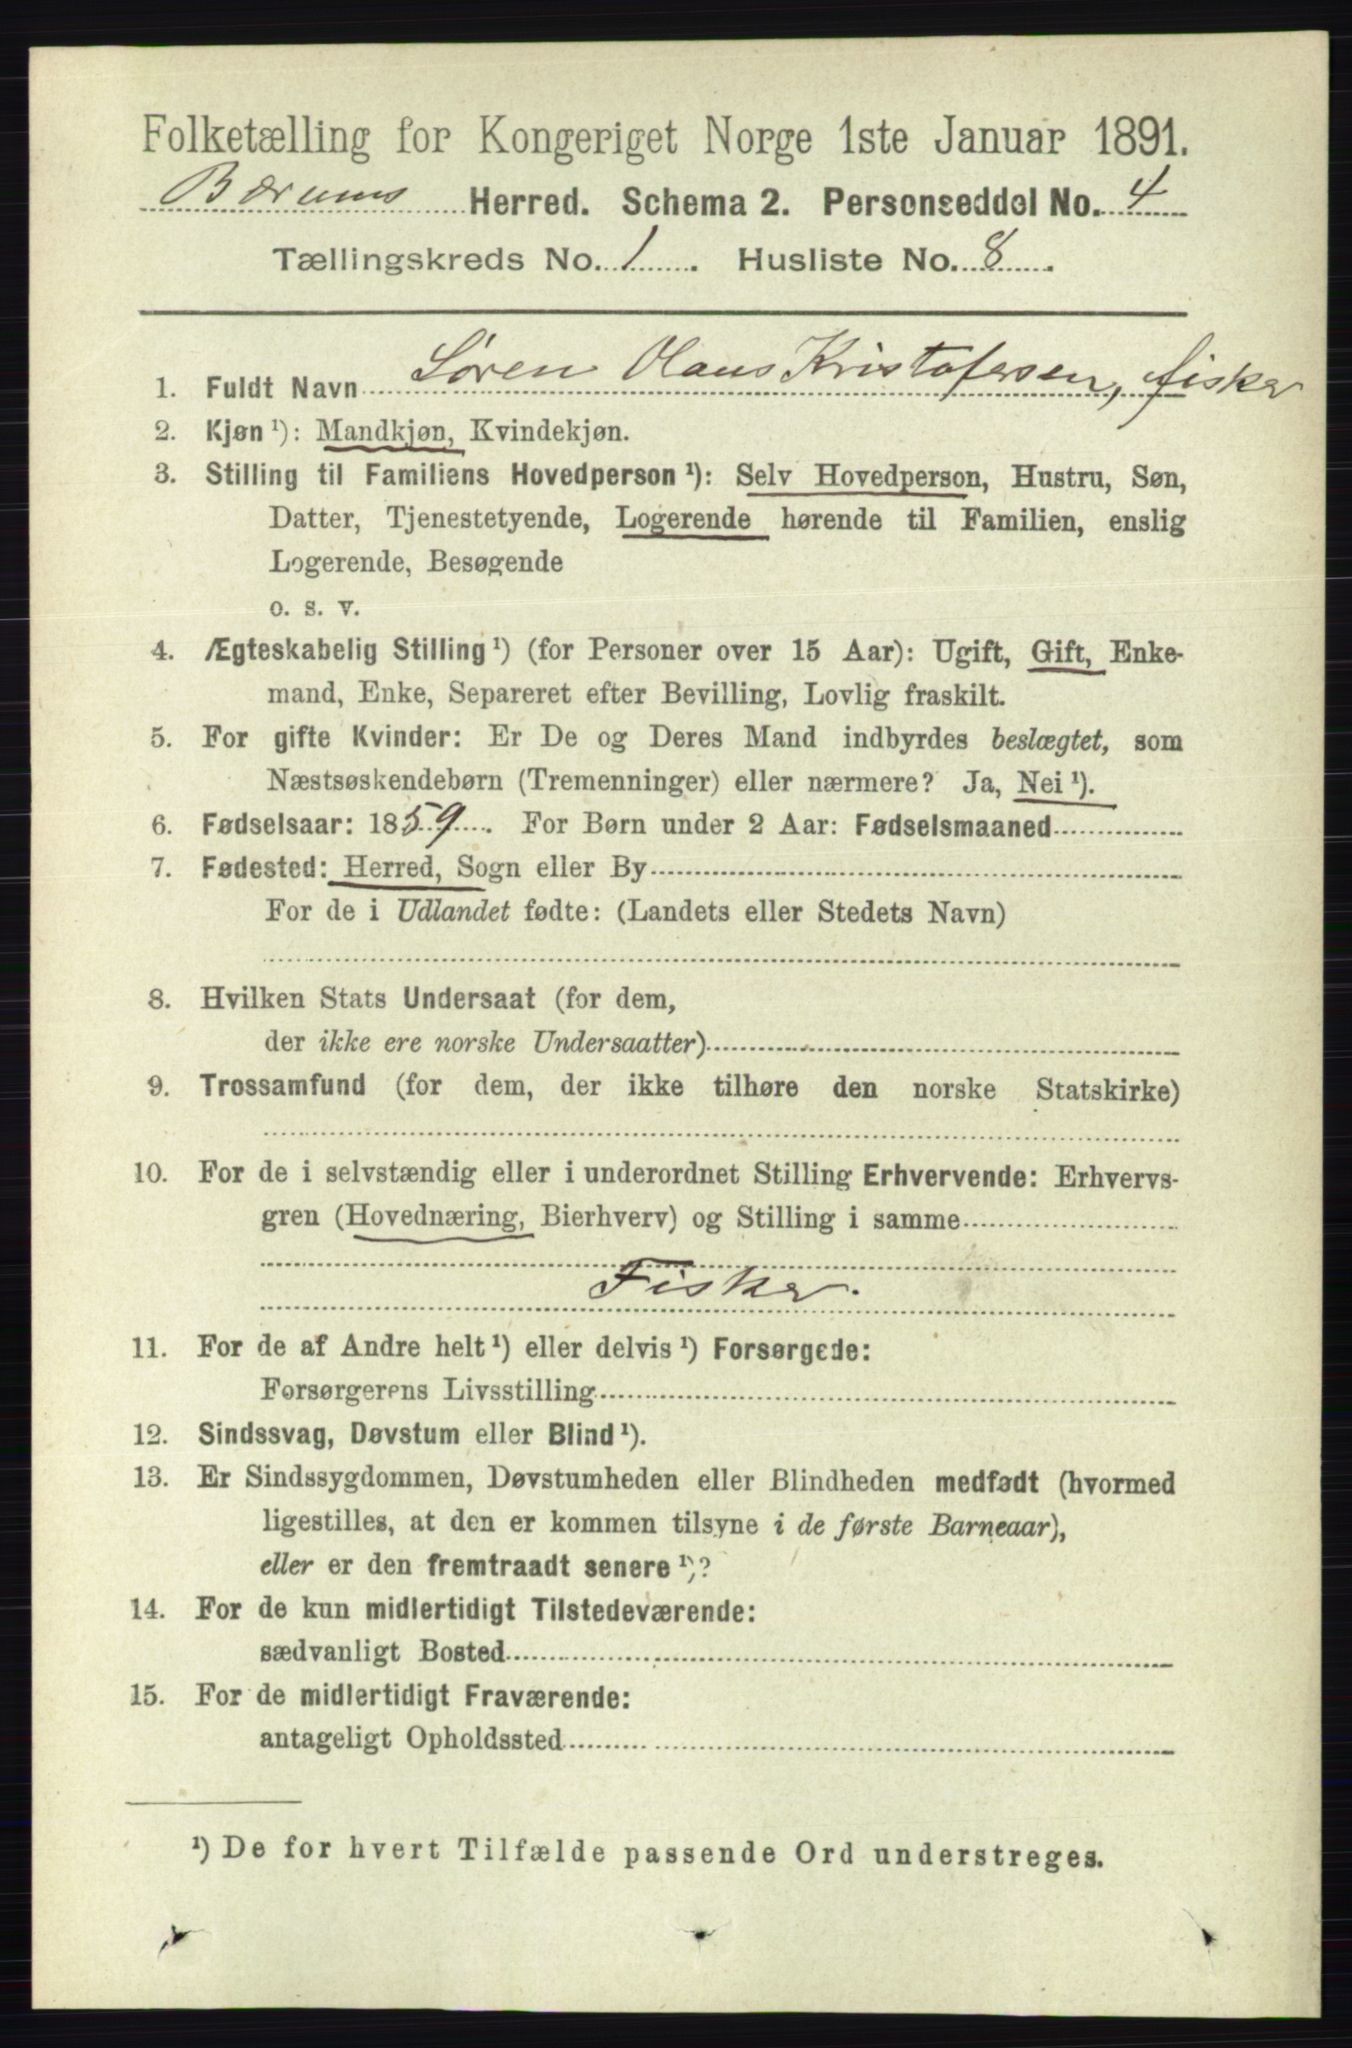 Folketælling for Kongeriget Norge 1ste Januar 1891.
Bærums Herred. Schema 2. Personseddel No. 4
Tællingskreds No. 1. Husliste No. 8.
1. Fuldt Navn Søren Olaus Kristofersen, fisker
2. Kjøn ¹): Mandkjøn, Kvindekjøn.
3. Stilling til Familiens Hovedperson ¹): Selv Hovedperson, Hustru, Søn,
Datter, Tjenestetyende, Logerende hørende til Familien, enslig
Logerende, Besøgende
o. s. v.
4. Ægteskabelig Stilling ¹) (for Personer over 15 Aar): Ugift, Gift, Enke-
mand, Enke, Separeret efter Bevilling, Lovlig fraskilt.
5. For gifte Kvinder: Er De og Deres Mand indbyrdes beslægtet, som
Næstsøskendebørn (Tremenninger) eller nærmere? Ja, Nei ¹).
6. Fødselsaar: 1859. For Børn under 2 Aar: Fødselsmaaned
7. Fødested: Herred, Sogn eller By
For de i Udlandet fødte: (Landets eller Stedets Navn)
8. Hvilken Stats Undersaat (for dem,
der ikke ere norske Undersaatter)
9. Trossamfund (for dem, der ikke tilhøre den norske Statskirke)
10. For de i selvstændig eller i underordnet Stilling Erhvervende: Erhvervs-
gren (Hovednæring, Bierhverv) og Stilling i samme
Fisker.
11. For de af Andre helt ¹) eller delvis ¹) Forsørgede:
Forsørgerens Livsstilling
12. Sindssvag, Døvstum eller Blind ¹).
13. Er Sindssygdommen, Døvstumheden eller Blindheden medfødt (hvormed
ligestilles, at den er kommen tilsyne i de første Barneaar),
eller er den fremtraadt senere ¹)?
14. For de kun midlertidigt Tilstedeværende:
sædvanligt Bosted
15. For de midlertidigt Fraværende:
antageligt Opholdssted
¹) De for hvert Tilfælde passende Ord understreges.